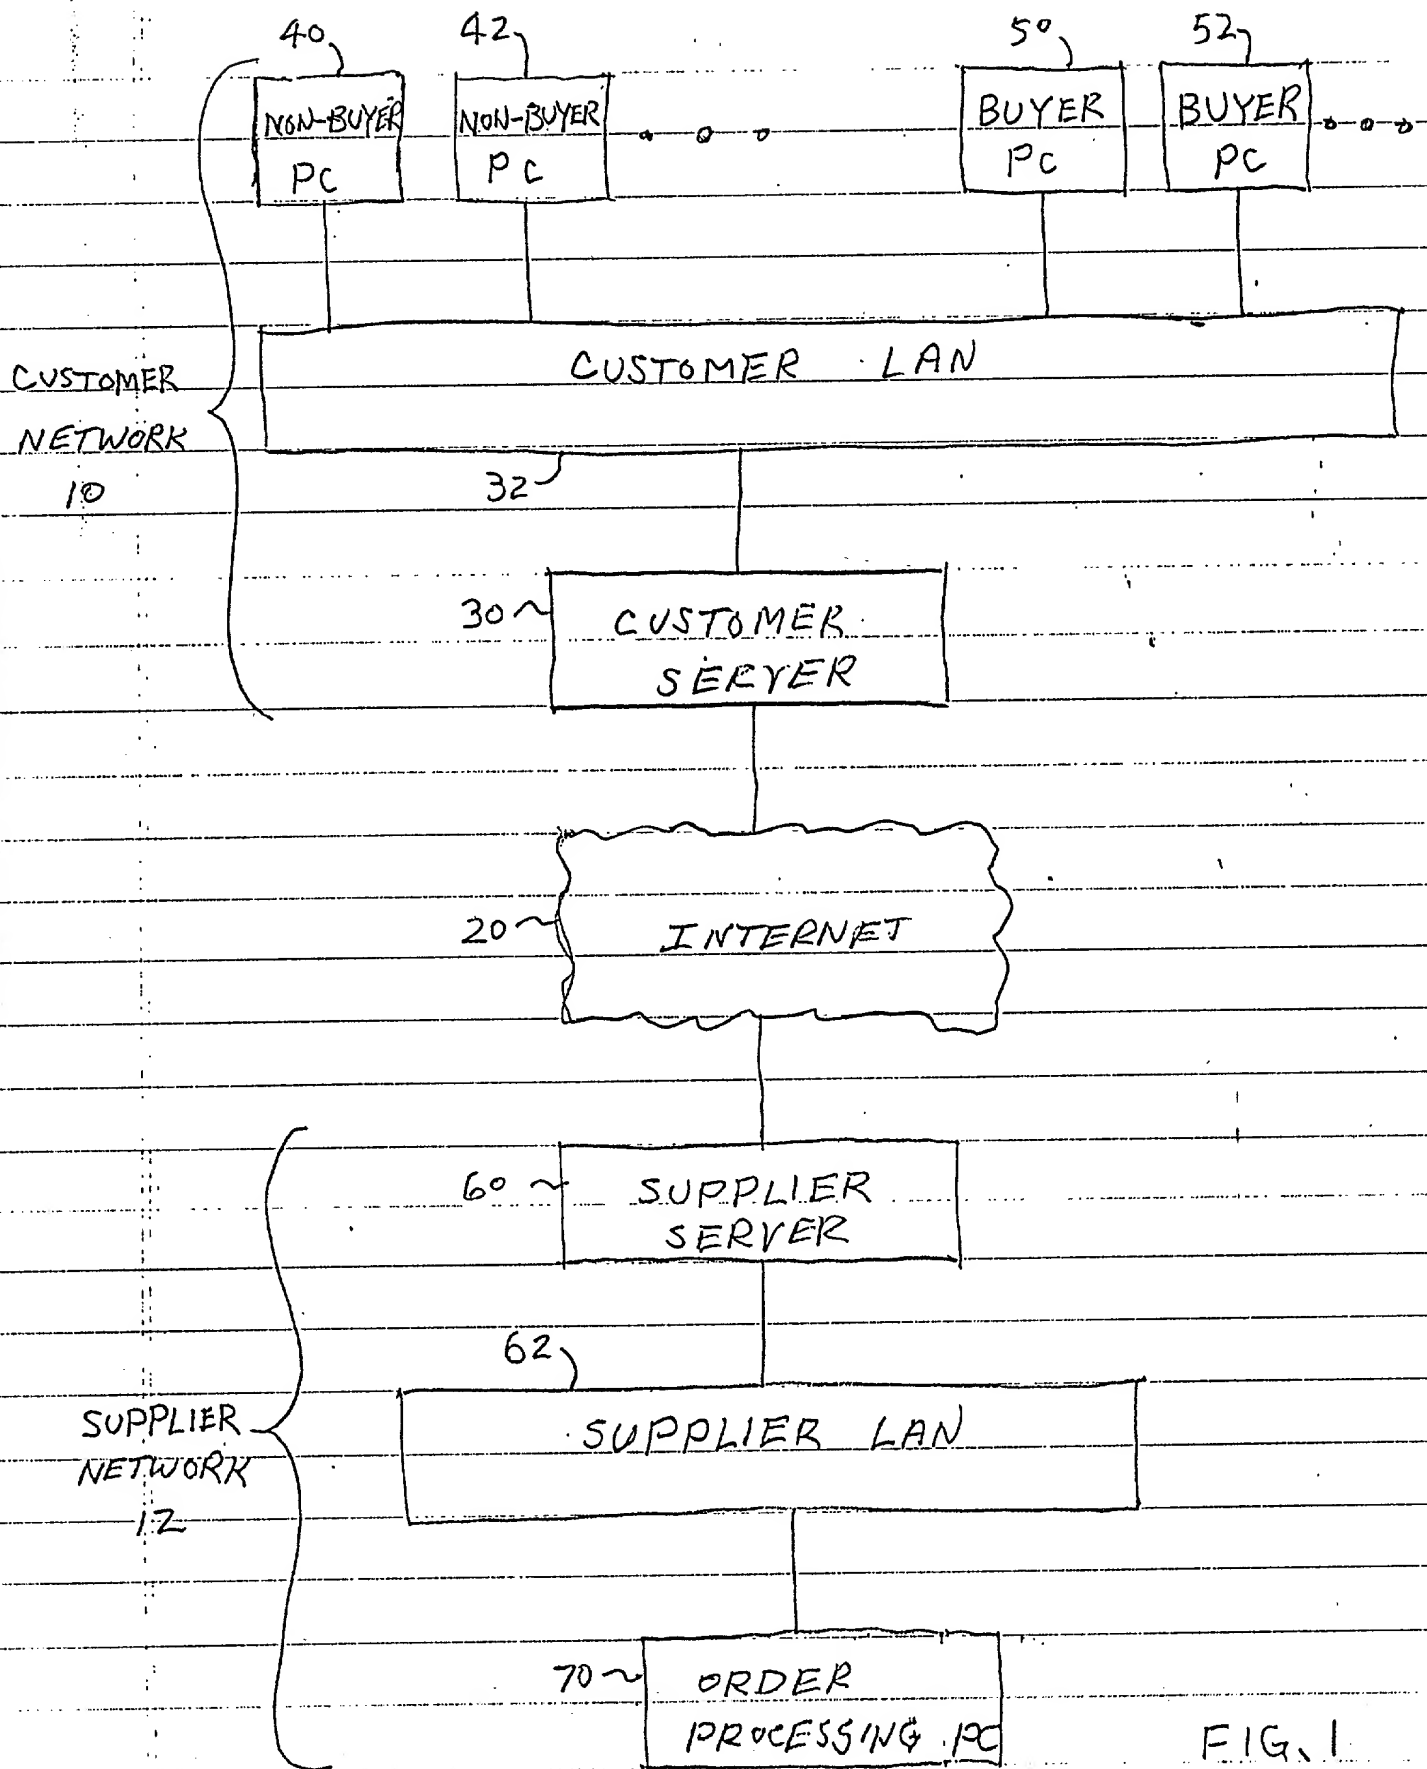 40
42
50
52
NON-BUYER
PC
NON-BUYER
PC
BUYER
PC
BUYER
PC
CUSTOMER LAN
CUSTOMER
NETWORK
10
32
30
CUSTOMER
SERVER
20
INTERNET
60
SUPPLIER
SERVER
62
SUPPLIER LAN
SUPPLIER
NETWORK
12
70
ORDER
PROCESSING PC
FIG. 1